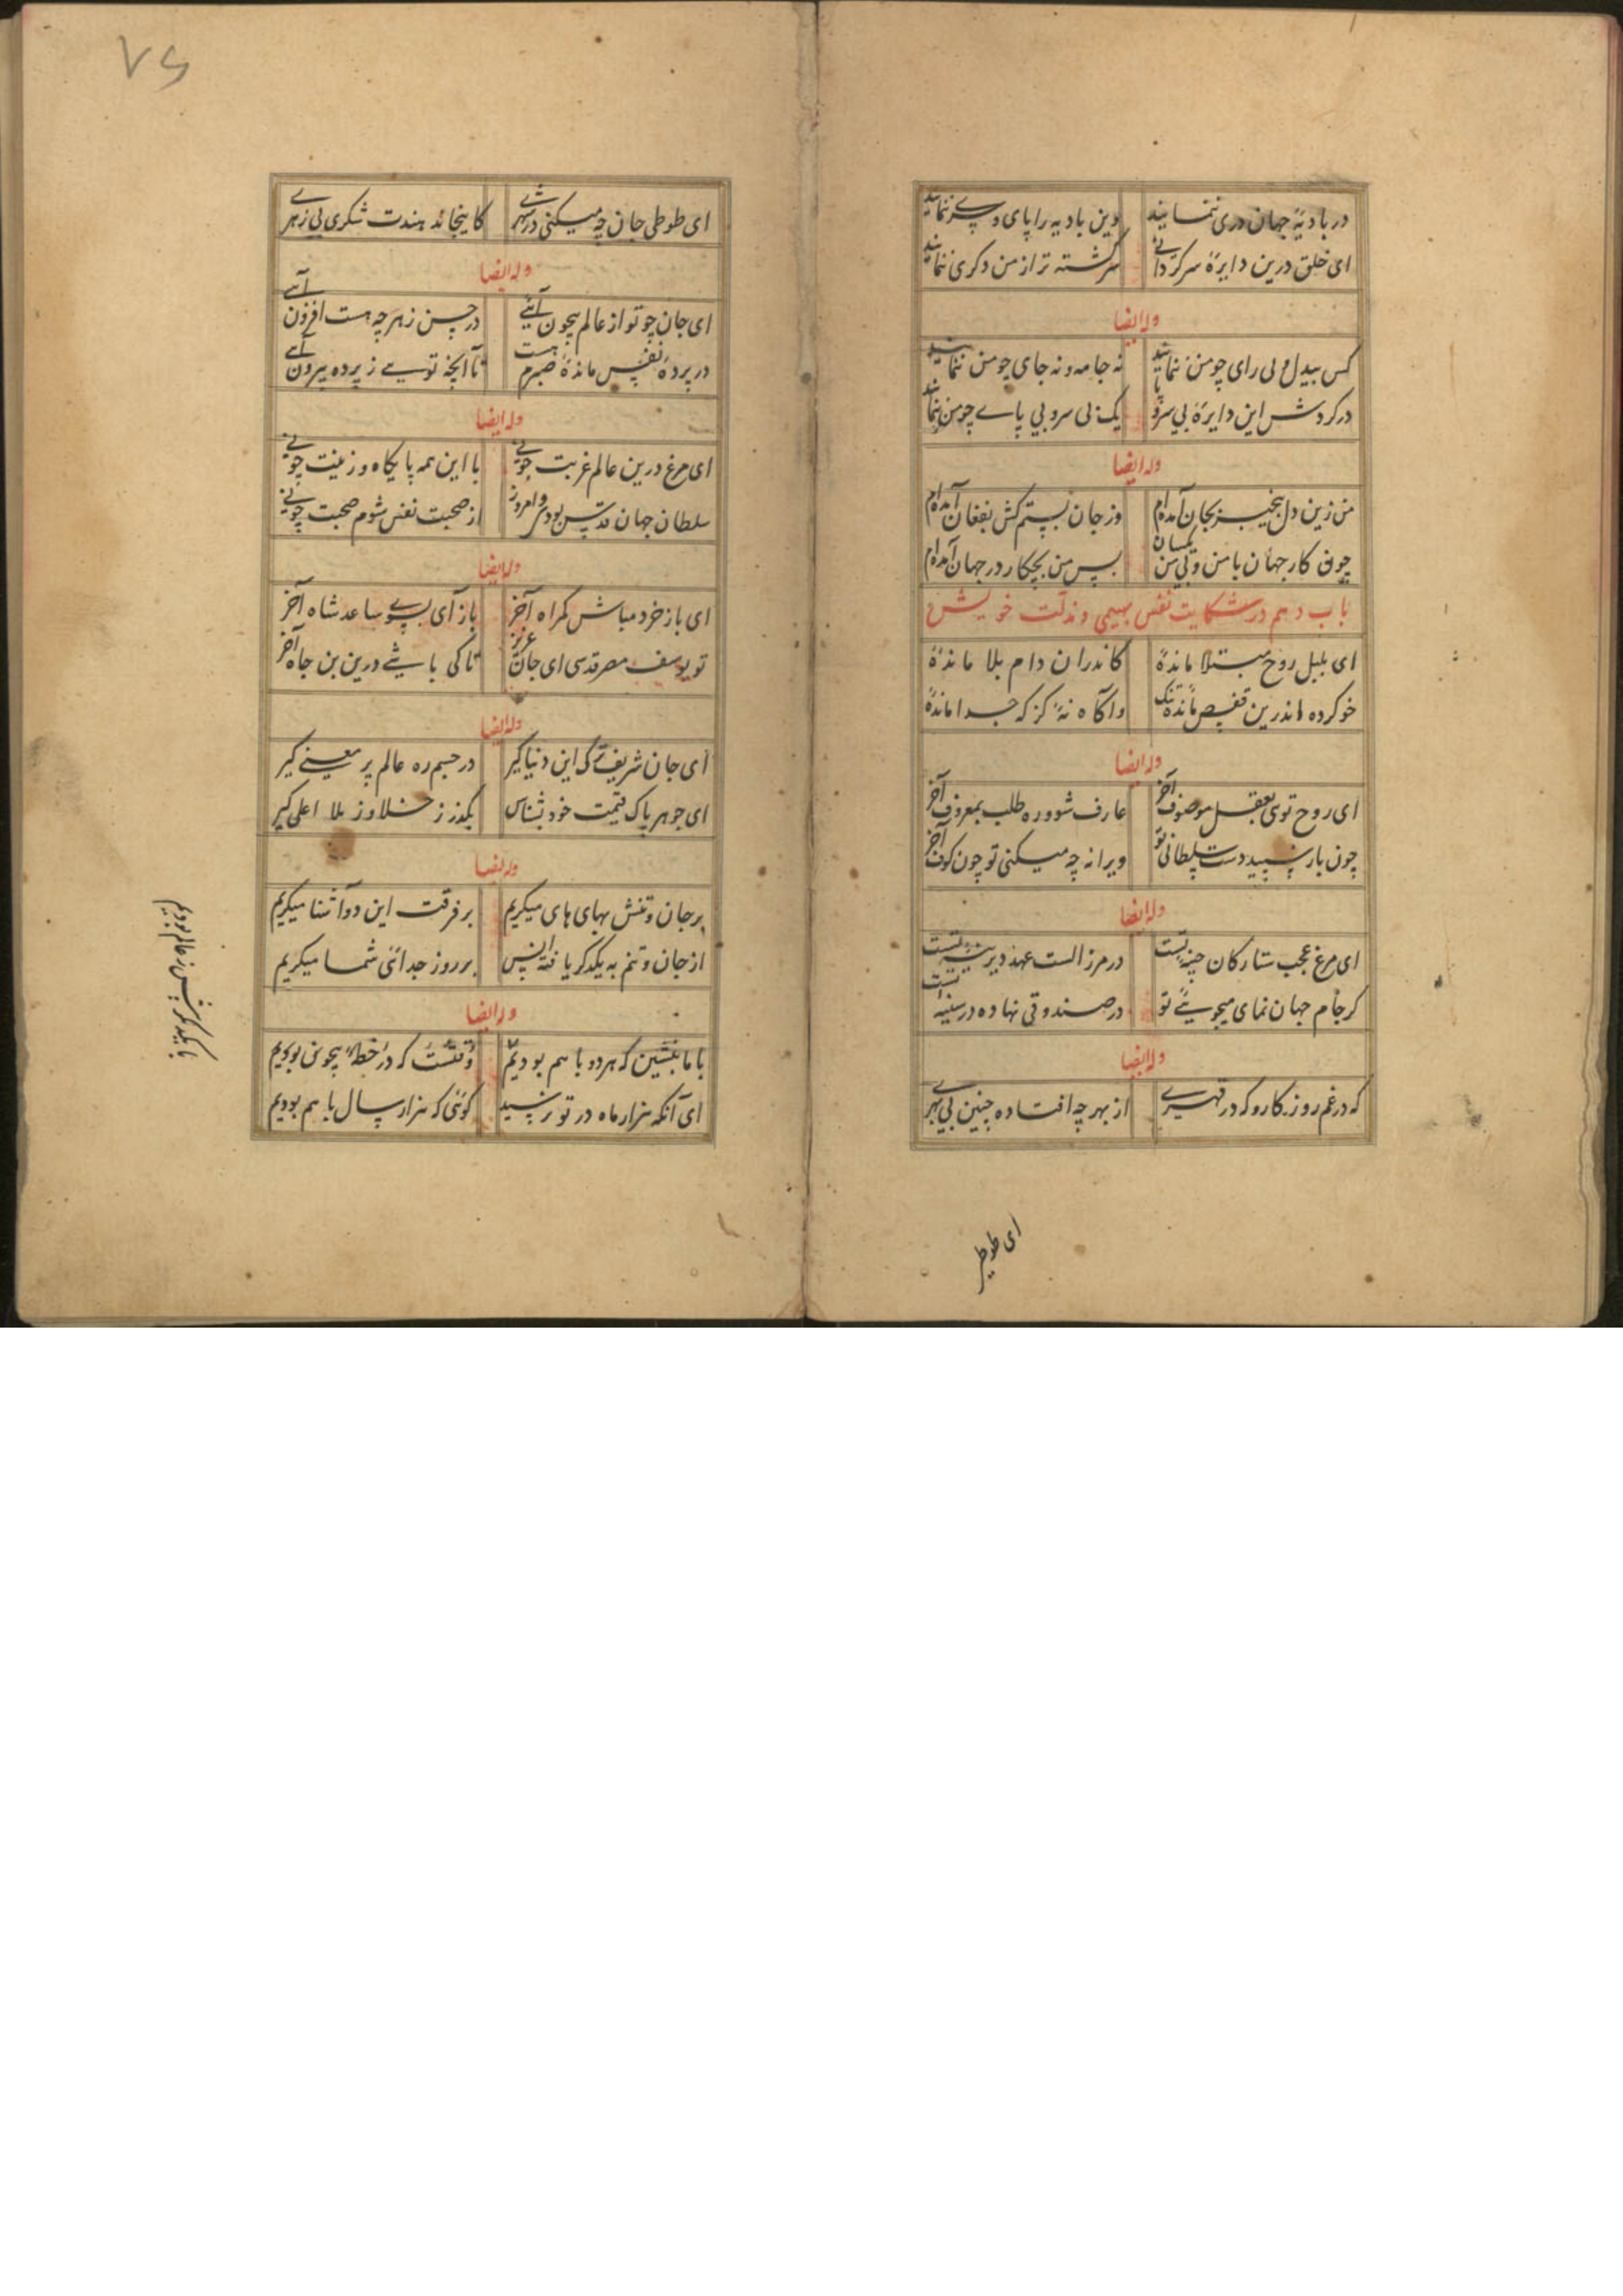 در بادیهٔ جهان دری ننمایند
وین بادیه را پای و سری ننمایند
ای خلق درین دایرهٔ سرگردانی
سرگشته تر از من دگری ننمایند
وله ایضا
کس بیدل و بی رای چو من ننمایند
نه جامه و نه جای چو من ننمایند
در گردش این دایرهٔ بی سر و پا
یک بی سر و بی پای چو من ننمایند
وله ایضا
من زین دل بیخبر بجان آمده‌ام
وز جان ستم کش بفغان آمده‌ام
چون کار جهان با من و بی من یکسان
پس من بچکار در جهان آمده‌ام
باب دهم در شکایت نفس بهیمی و مذلت خویش
ای بلبل روح مبتلا ماندهٔ
کاندران دام بلا ماندهٔ
خو کرده اندرین قفص ماندهٔ تنک
واکاه نهٔ کز که جدا ماندهٔ
وله ایضا
ای روح توی بعقل موصوف آخر
عارف شو و ره طلب بمعروف آخر
چون باز سپید دست سلطانی تو
ویرانه چه میکنی تو چون کوف آخر
وله ایضا
ای مرغ عجب ستارکان چینهٔ تست
در مرز الست عهد دیرینهٔ تست
کر جام جهان نمای میجوئی تو
در صندوقی نهاده در سینهٔ تست
وله ایضا
که در غم روزکار و که در قهری
از بهر چه افتاده چنین بی بهری
ای طوطی
۷۶
ای طوطی جان چه میکنی در شهری
کاینجا ندهندت شکری بی زهری
وله ایضا
ای جان چو تو از عالم بیچون آئی
در حسن ز هر چه هست افزون آئی
در پردهٔ نفس ماندهٔ صبرم هست
تا آنچه تویی ز پرده بیرون آئی
وله ایضا
ای مرغ درین عالم غربت چونی
با این همه پایکاه و زینت چونی
سلطان جهان قدس بودی و امروز
از صحبت نفس شوم صحبت چونی
وله ایضا
ای باز خرد مباش کمراه آخر
باز آی بسوی ساعد شاه آخر
تو یوسف مصر قدسی ای جان عزیز
تا کی باشی درین بن چاه آخر
وله ایضا
ای جان شریف ترک این دنیا کیر
در جسم ره عالم پر معنی کیر
ای جوهر پاک قیمت خود بشناس
بکذر ز خلا و ز ملا اعلی کیر
وله ایضا
بر جان و تنش بهای های میکریم
بر فرقت این دو آشنا میکریم
از جان و تنم به یکدکر یافته انس
بر روز جدائی شما میکریم
وله ایضا
با ما بنشین که هر دو با هم بودیم
وقتست که در خطهٔ بیچون بودیم
ای آنکه هزار ماه در تو نرسید
کوئی که هزار سال با هم بودیم
با یکدگر پیش از عالم بودیم